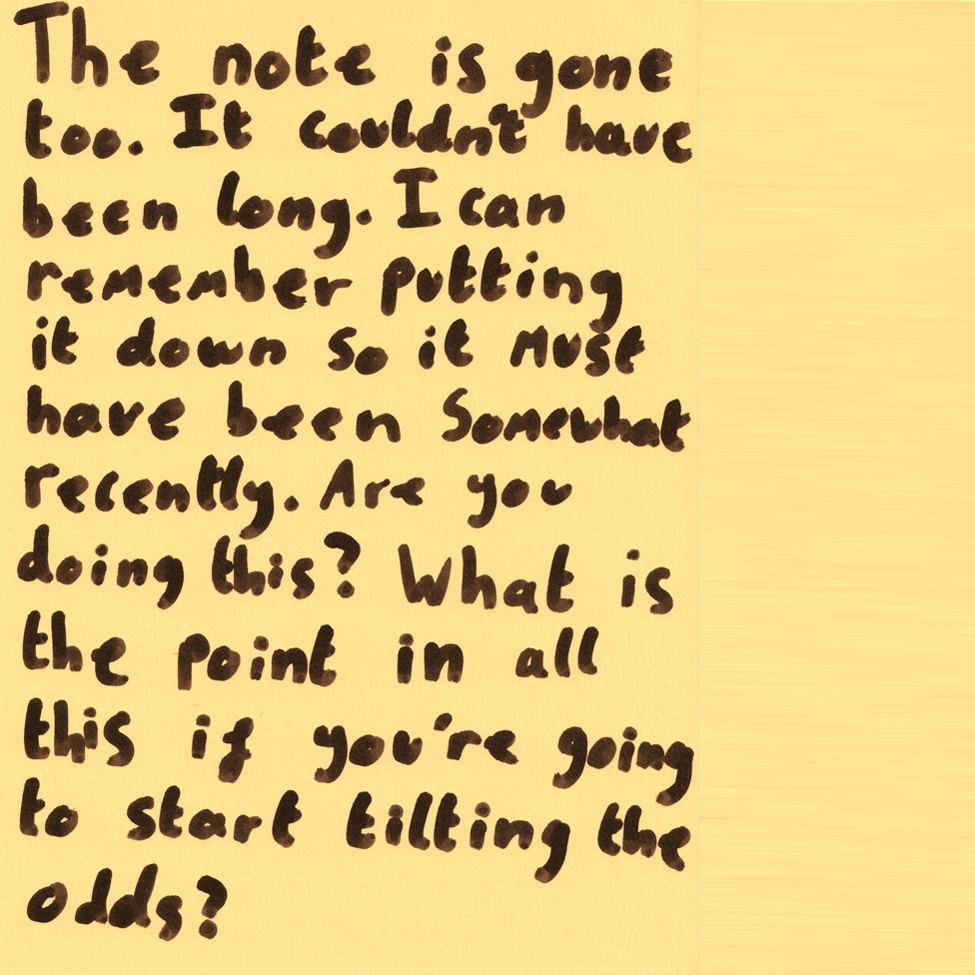 The note is gone
too. It couldn't have
been long. I can
remember putting
it down so it must
have been somewhat
recently. Are you
doing this? What is
the point in all
this if you're going
to start tilting the
odds?